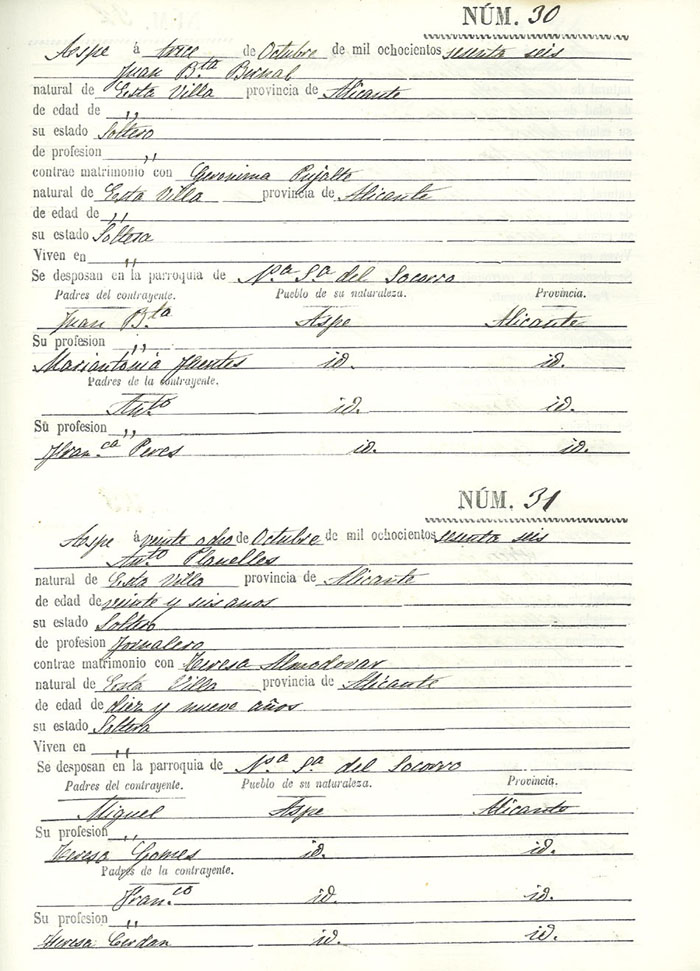 NÚM. 30
Aspe á trece de Octubre de mil ochocientos sesenta seis
Juan Bta Bernal
natural de Esta Villa provincia de Alicante
de edad de ,,
su estado Soltero
de profesion ,,
contrae matrimonio con Geronima Pujalte
natural de Esta Villa provincia de Alicante
de edad de ,,
su estado Soltera
Viven en ,,
Se desposan en la parroquia de Na Sa del Socorro
Padres del contrayente. Pueblo de su naturaleza. Provincia.
Juan Bta Aspe Alicante
Su profesion ,,
Mariantonia Fuentes id. id.
Padres de la contrayente.
Anto id. id.
Su profesion ,,
Fran.ca Peres id. id.
NÚM. 31
Aspe á veinte ocho de Octubre de mil ochocientos sesenta seis
Anto Planelles
natural de Esta Villa provincia de Alicante
de edad de veinte y seis anos
su estado Soltero
de profesion Jornalero
contrae matrimonio con Teresa Almodovar
natural de Esta Villa provincia de Alicante
de edad de diez y nueve años
su estado Soltera
Viven en ,,
Se desposan en la parroquia de Na Sa del Socorro
Padres del contrayente. Pueblo de su naturaleza. Provincia.
Miguel Aspe Alicante
Su profesion ,,
Teresa Gomes id. id.
Padres de la contrayente.
Fran.co id. id.
Su profesion ,,
Teresa Cerdan id. id.